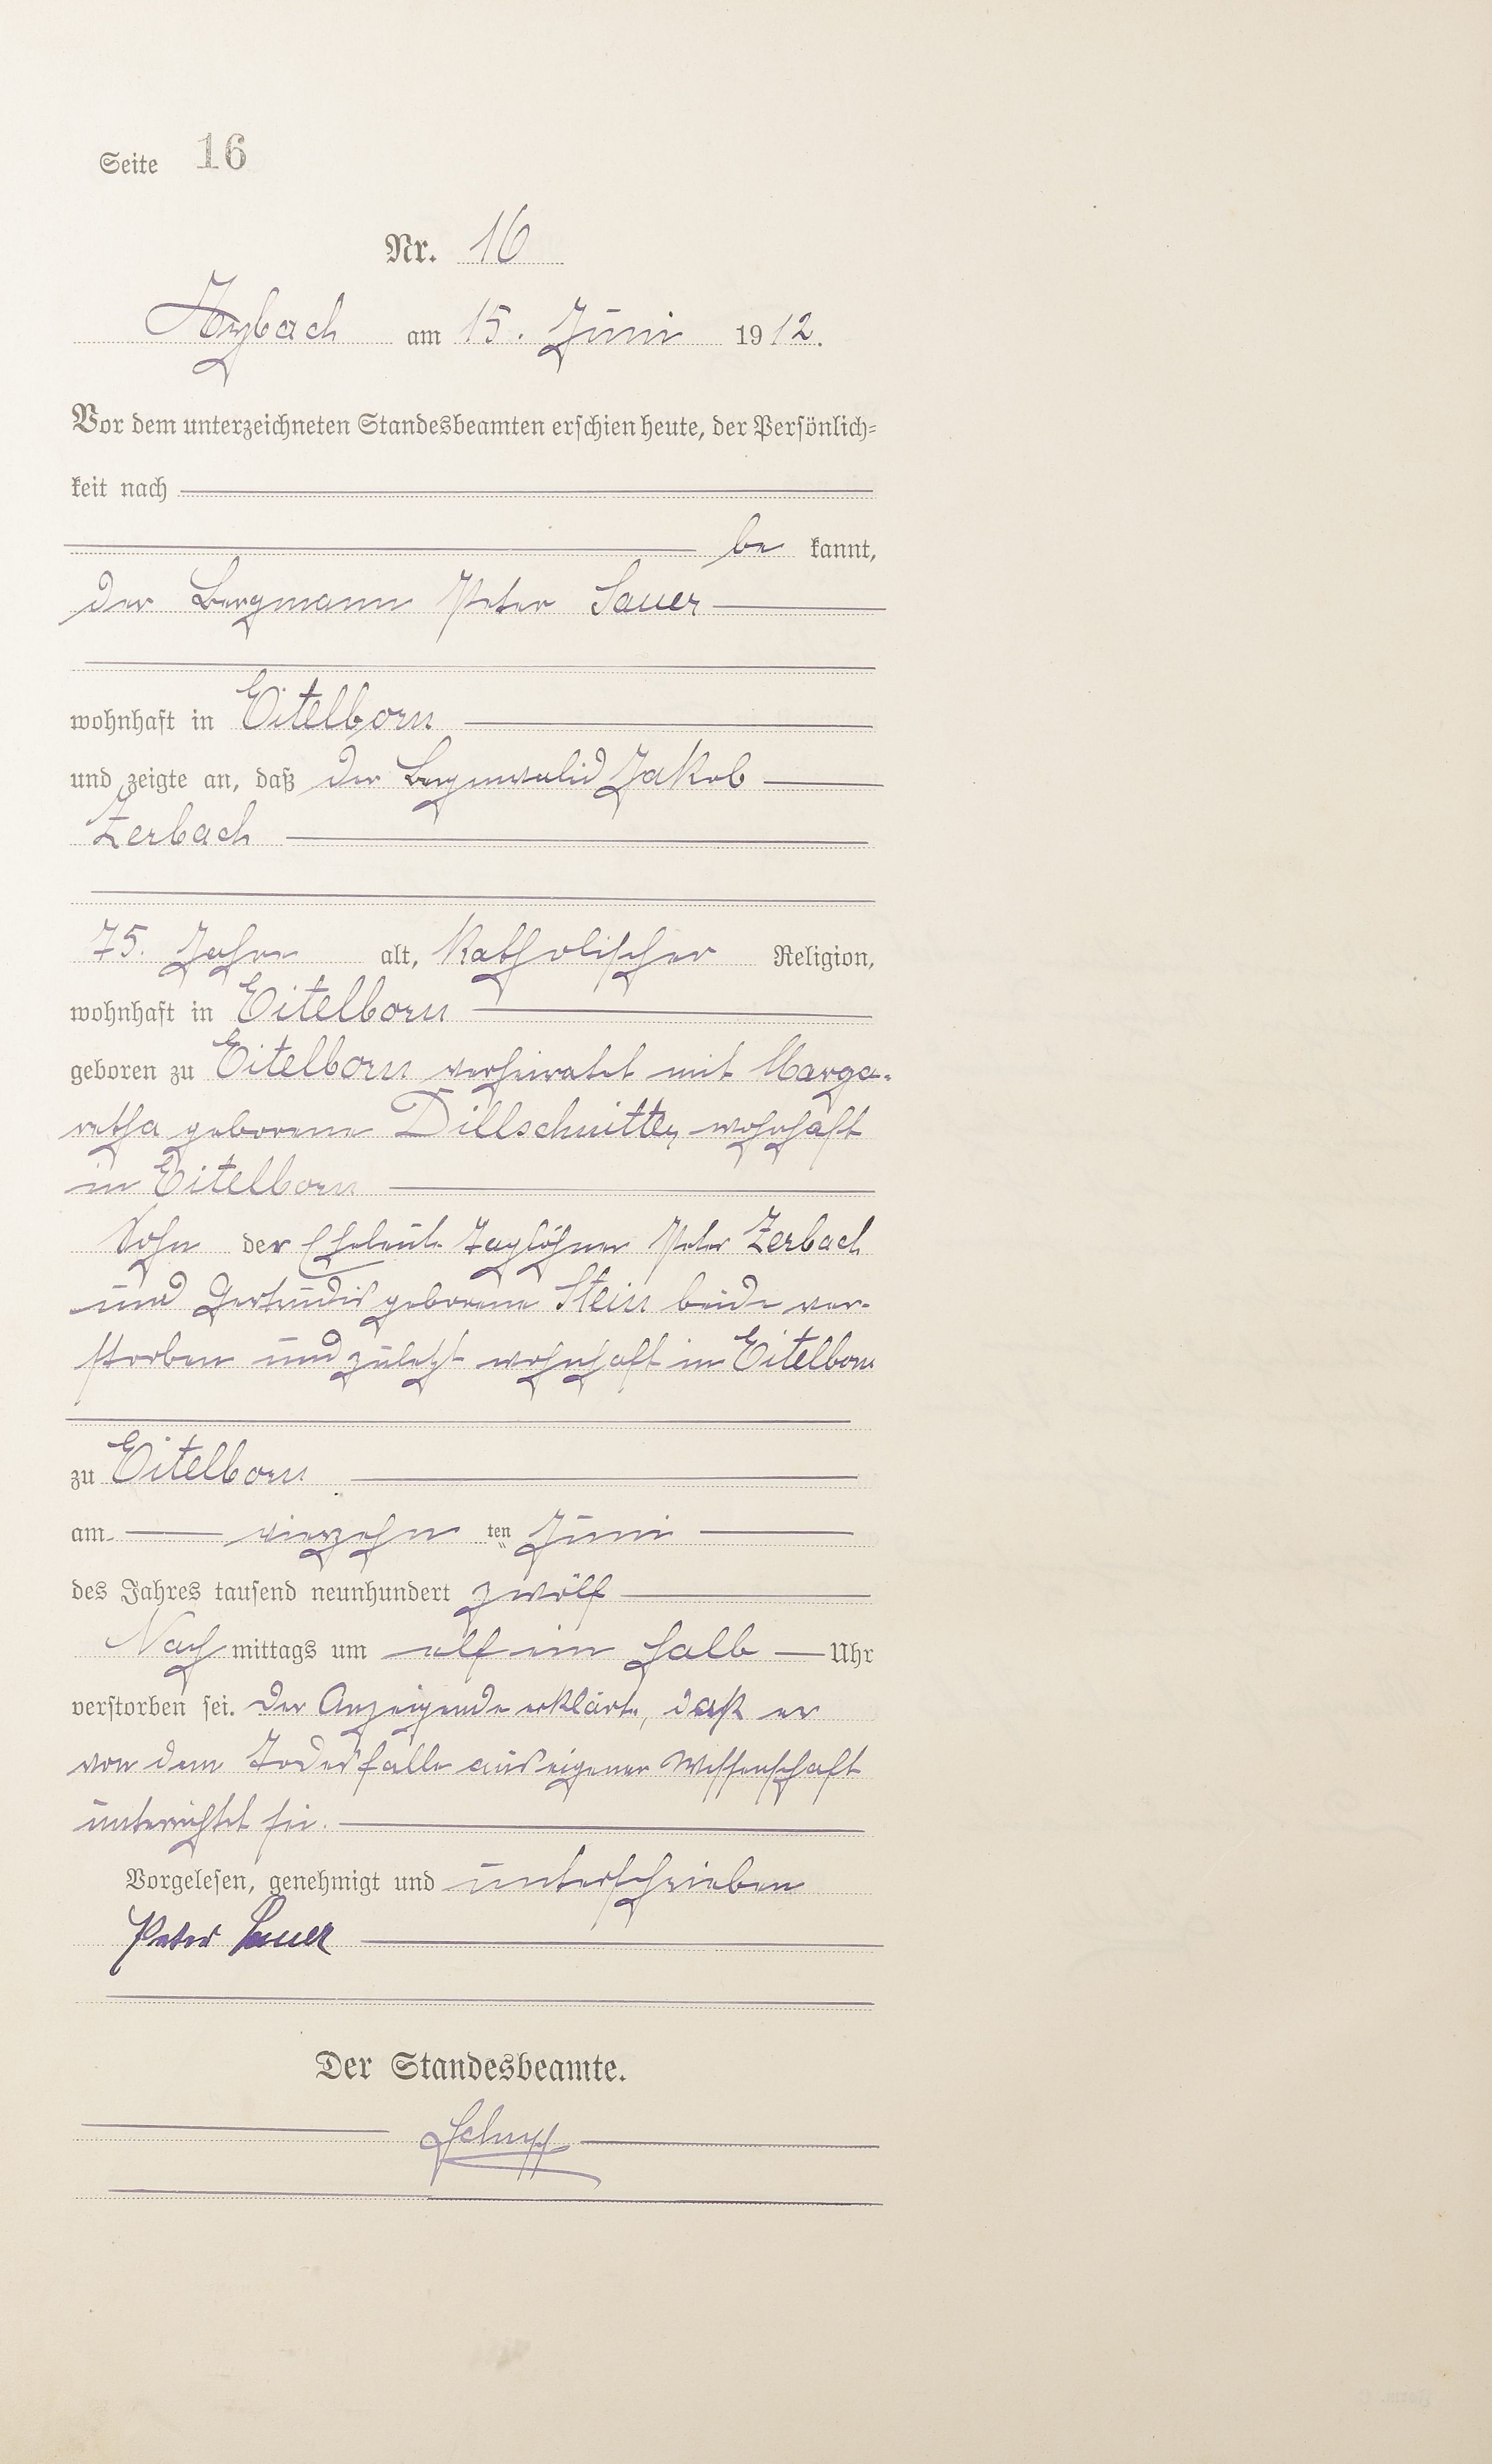 Seite 16
Nr. 16
Arzbach am 15. Juni 1912.
Vor dem unterzeichneten Standesbeamten erschien heute, der Persönlich-
keit nach
be kannt,
der Bergmann Peter Sauer
wohnhaft in Eitelborn
und zeigte an, daß der Berginvalid Jakob
Zerbach
75. Jahre alt, Katholischer Religion,
wohnhaft in Eitelborn
geboren zu Eitelborn verheiratet mit Marga-
retha geborene Dillschnitter wohnhaft
in Eitelborn
Sohn der Eheleute Taglöhner Peter Zerbach
und Gertrudis geborene Stein beide ver-
storben und zuletzt wohnhaft in Eitelborn
zu Eitelborn
am vierzehn ten Juni
des Jahres tausend neunhundert zwölf
Nach mittags um elf ein halb Uhr
verstorben sei. Der Anzeigende erklärte, daß er
von dem Todesfalle aus eigener Wissenschaft
unterrichtet sei.
Vorgelesen, genehmigt und unterschrieben
Peter Sauer
Der Standesbeamte.